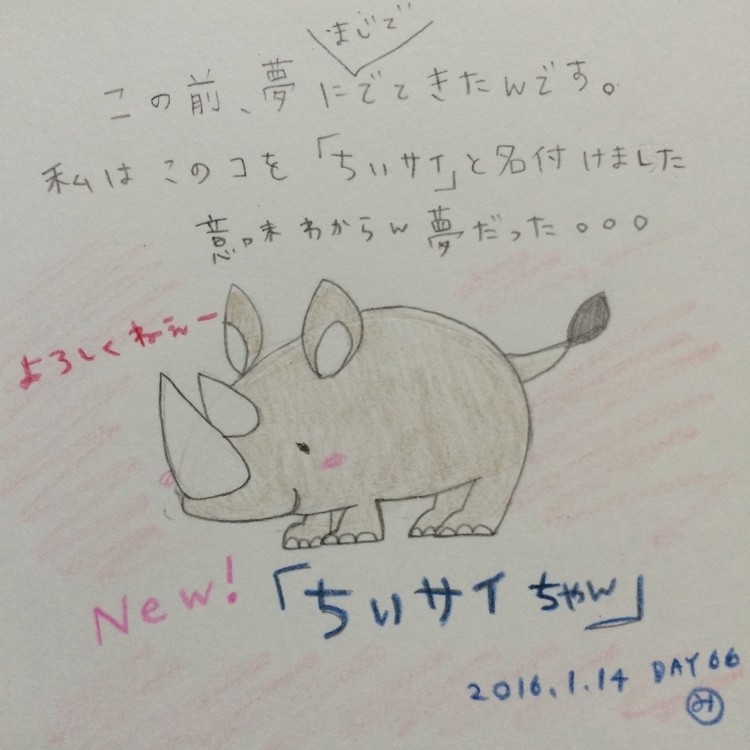 まじで
この前、夢にでてきたんです。
私はこのコを「ちぃサイ」と名付けました
意味わからん夢だった。。。
よろしくねぇー
New!「ちぃサイちゃん」
2016.1.14 DAY66
み